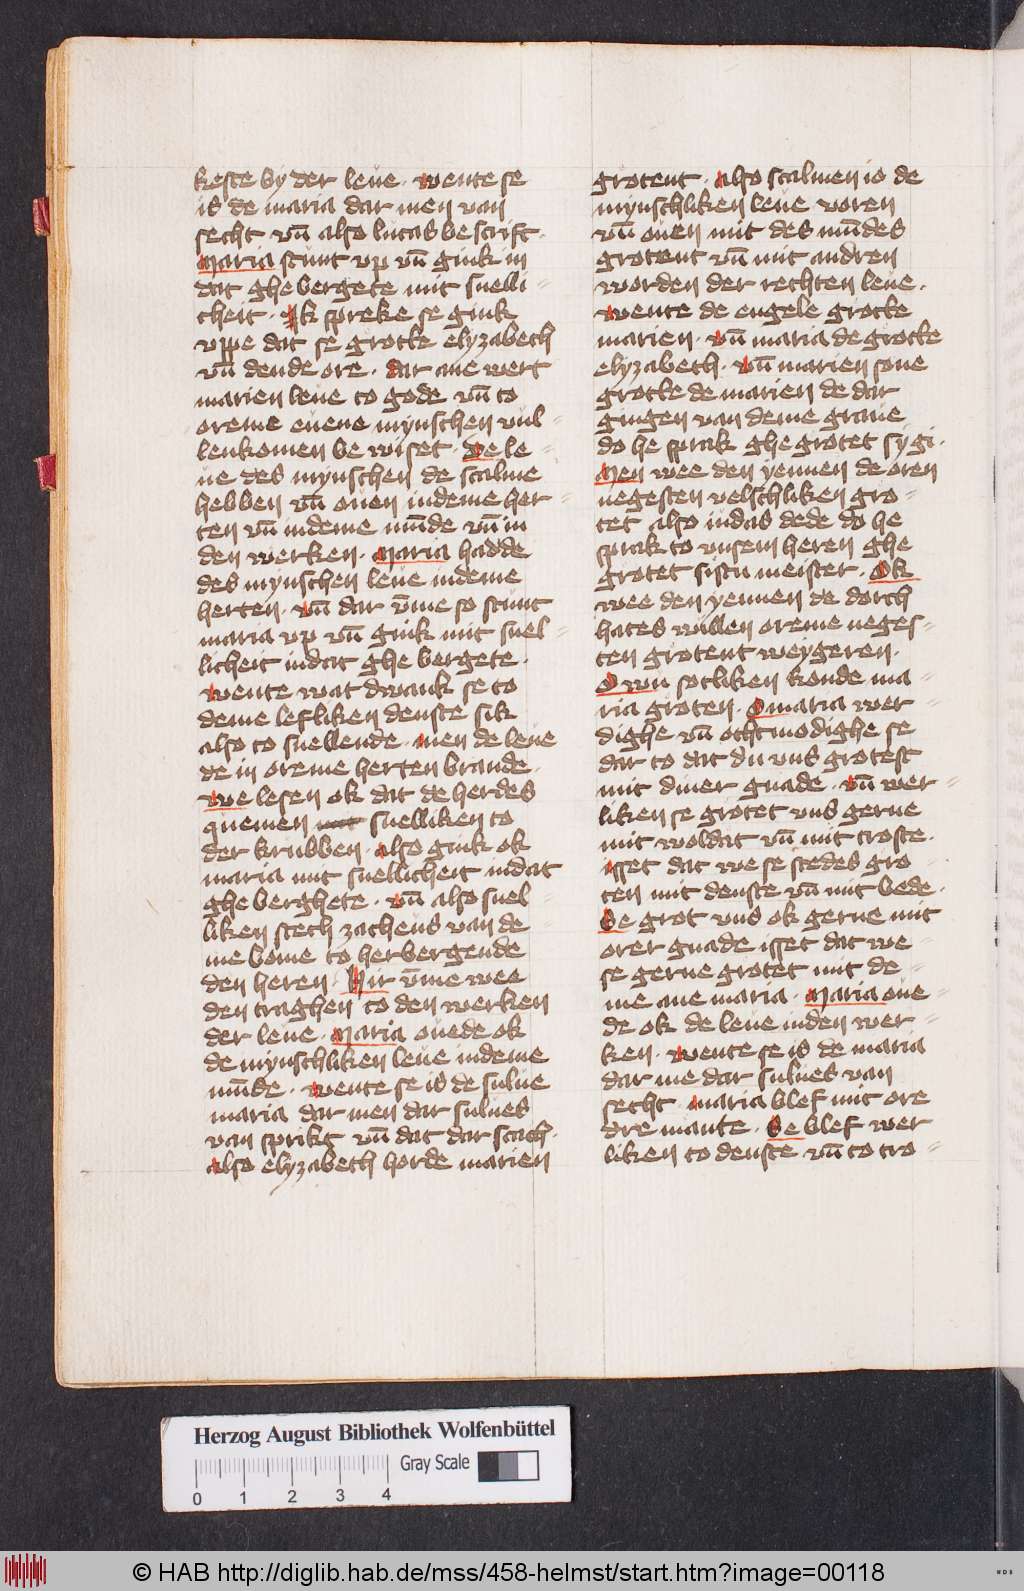 keste by der leue. wente se
is de maria dar men van
secht vn̄ also lucas bescrift.
Maria stunt vp vn̄ gink in
dat ghebergete mit snelli-
cheit. Ik spreke se gink
vppe dat se grotte elyzabeth
vn̄ dende ore. dar ane wert
marien leue to gode vn̄ to
oreme euene mynschen vul-
lenkomen bewiset. De le-
ue des mynschen de scalme
hebben vn̄ ouen indeme her-
ten vn̄ indeme mūde vn̄ in
den werken. Maria hadde
des mynschen leue indeme
herten. vn̄ dar v̄me so stunt
maria vp vn̄ gink mit snel-
licheit indat ghebergete.
wente wat dwank se to
deme lefliken denste sik
also to snellende. men de leue
de in oreme herten brande.
We lesen ok dat de herdes
quemen snelliken to
der krubben. also gink ok
maria mit snellicheit indat
gheberghete. vn̄ also snel-
liken stech zacheus van de-
me bome to herbergende
den heren. Hir v̄me wee
den traghen to den werken
der leue. Maria ouede ok
de mynschliken leue indeme
mūde. wente se is de sulue
maria dar men dar sulues
van sprikt vn̄ dat dar scach.
also elyzabeth horde marien
grotent. also scalmen io de
mynschliken leue voren
vn̄ ouen mit des mūdes
grotent vn̄ mit andren
worden der rechten leue.
wente de engele grotte
marien. vn̄ maria de grotte
elyzabeth. vn̄ marien sone
grotte de marien de dar
gingen van deme graue
do he sprak ghegrotet sy gi.
Men wee den yennen de oren
negesten velschliken gro-
tet also iudas dede do he
sprak to vnsem heren ghe
grotet sistu meister. Ok
wee den yennen de dorch
hates willen oreme neges-
ten grotent weygeren.
O wu sotliken konde ma-
ria groten. O maria wer-
dighe vn̄ othmodighe se
dar to dat du vns grotest
mit diner gnade. vn̄ wer-
liken se grotet vns gerne
mit woldat vn̄ mit troste.
isset dat we se stedes gro-
ten mit denste vn̄ mit bede.
Se grot vns ok gerne mit
orer gnade isset dat we
se gerne grotet mit de-
me aue maria. Maria oue-
de ok de leue inden wer-
ken. wente se is de maria
dar me dar sulues van
secht. maria blef mit ore
dre mante. Se blef wer-
liken to denste vn̄ to tro-
Herzog August Bibliothek Wolfenbüttel
Gray Scale
0 1 2 3 4
© HAB http://diglib.hab.de/mss/458-helmst/start.htm?image=00118